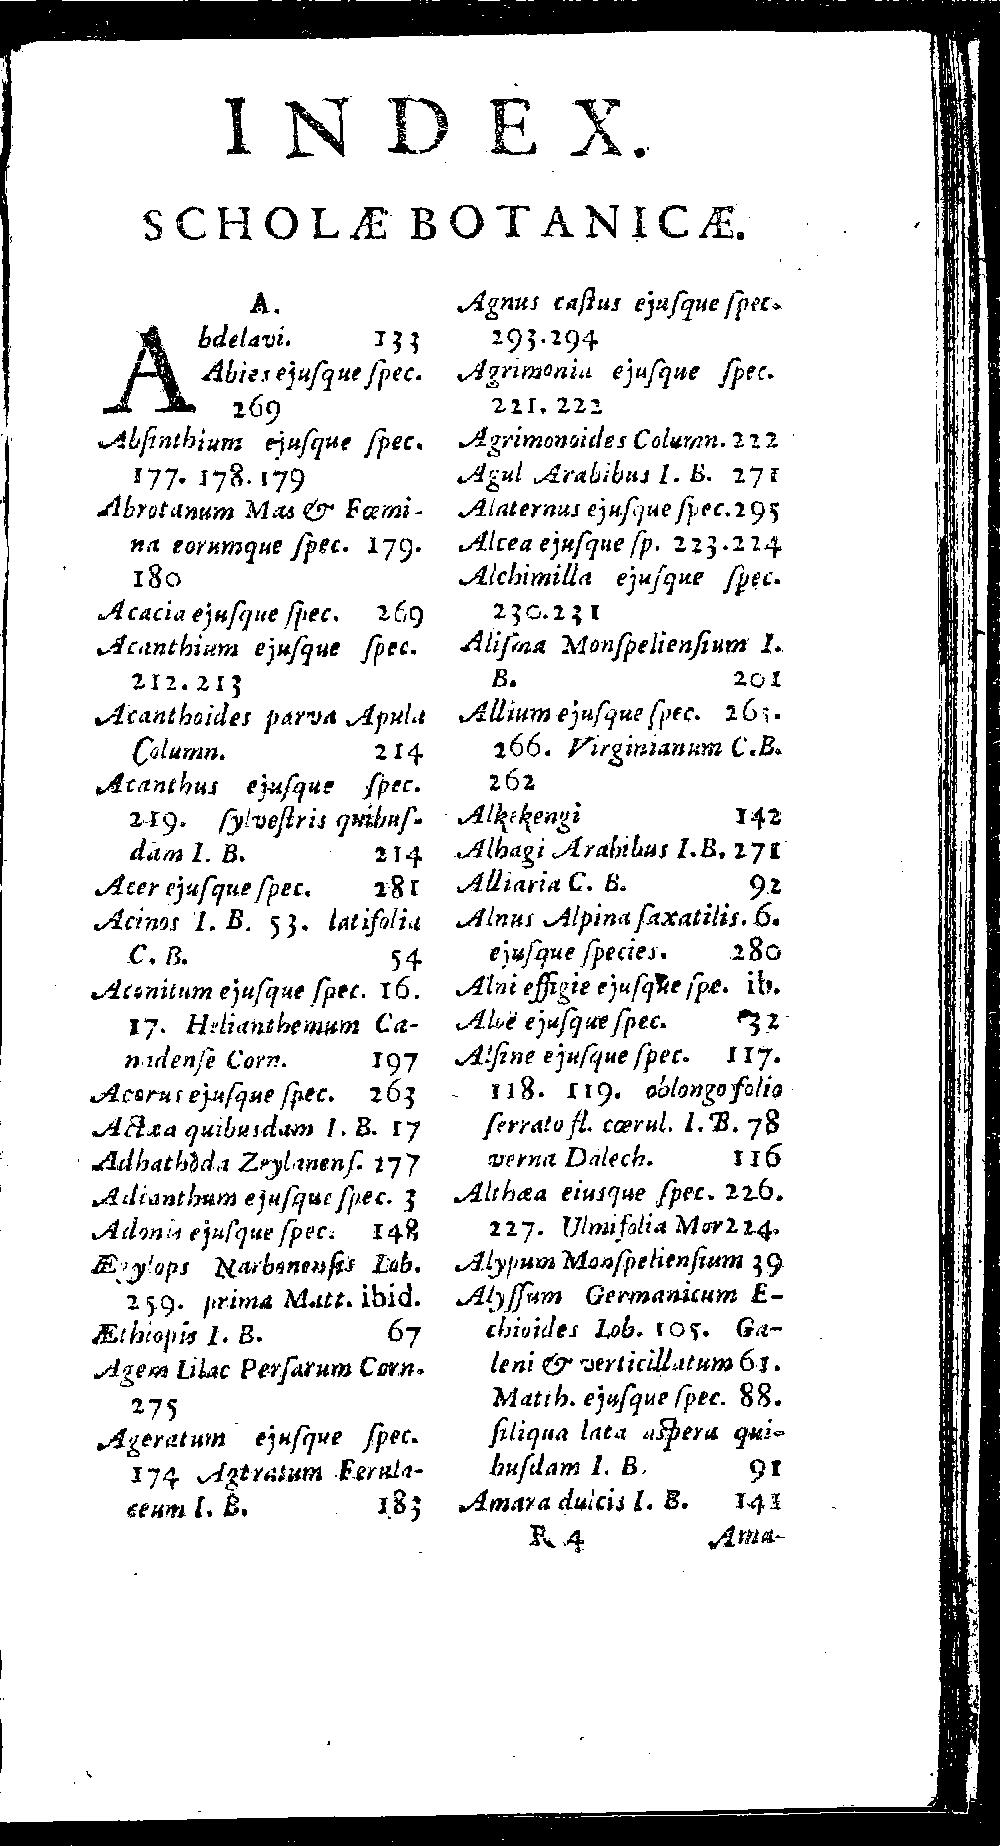 INDEX.
SCHOLÆ BOTANICÆ.
A.
Abdelavi. 133
Abies ejuſque ſpec.
269
Abſinthium ejuſque ſpec.
177. 178. 179
Abrotanum Mas & Fœmi-
na eorumque ſpec. 179.
180
Acacia ejuſque ſpec. 269
Acanthium ejuſque ſpec.
212. 213
Acanthoides parva Apula
Column. 214
Acanthus ejuſque ſpec.
219. ſylveſtris quibuſ-
dam I. B. 214
Acer ejuſque ſpec. 281
Acinos I. B. 53. latifolia
C. B. 54
Aconitum ejuſque ſpec. 16.
17. Helianthemum Ca-
nadenſe Corn. 197
Acorus ejuſque ſpec. 263
Actæa quibusdam I. B. 17
Adhathoda Zeylanenſ. 277
Adianthum ejuſque ſpec. 3
Adonis ejuſque ſpec. 148
Ægylops Narbonenſis Lob.
259. prima Matt. ibid.
Æthiopis I. B. 67
Agem Lilac Perſarum Corn.
275
Ageratum ejuſque ſpec.
174 Ageratum Ferula-
ceum I. B. 183
Agnus caſtus ejuſque ſpec.
293. 294
Agrimonia ejuſque ſpec.
221. 222
Agrimonoides Column. 222
Agul Arabibus I. B. 271
Alaternus ejuſque ſpec. 295
Alcea ejuſque ſp. 223. 224
Alchimilla ejuſque ſpec.
230. 231
Aliſma Monſpelienſium I.
B. 201
Allium ejuſque ſpec. 265.
266. Virginianum C. B.
262
Alkekengi 142
Alhagi Arabibus I. B. 271
Alliaria C. B. 92
Alnus Alpina ſaxatilis. 6.
ejuſque ſpecies. 280
Alni effigie ejuſque ſpe. ib.
Aloë ejuſque ſpec. 32
Alſine ejuſque ſpec. 117.
118. 119. oblongo folio
ſerrato fl. cœrul. I. B. 78
verna Dalech. 116
Althæa eiusque ſpec. 226.
227. Ulmifolia Mor 224.
Alypum Monſpelienſium 39
Alyſſum Germanicum E-
chioides Lob. 105. Ga-
leni & verticillatum 61.
Matth. ejuſque ſpec. 88.
ſiliqua lata aspera qui-
buſdam I. B. 91
Amara dulcis I. B. 141
R 4 Ama-